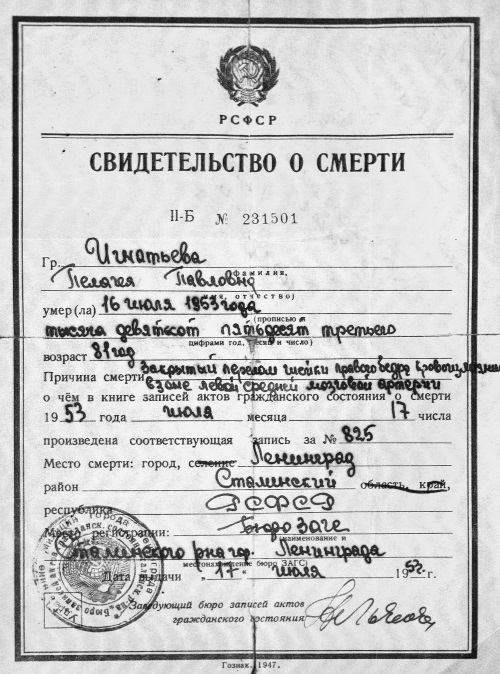 РСФСР
СВИДЕТЕЛЬСТВО О СМЕРТИ
II-Б № 231501
Гр. Игнатьева
фамилия,
Пелагея Павловна
имя, отчество)
умер(ла) 16 июля 1953 года
(прописью и
тысяча девятсот пятьдесят третьего
цифрами год, месяц и число)
возраст 81 год
Причина смерти закрытый перелом шейки правого бедра, кровоизлияние
в зоне левой средней мозговой артерии
о чём в книге записей актов гражданского состояния о смерти
1953 года июля месяца 17 числа
произведена соответствующая запись за № 825
Место смерти: город, селение Ленинград
район Сталинский область, край,
республика РСФСР
Место регистрации: Бюро ЗАГС
(наименование и
Сталинского р-на гор. Ленинграда
местонахождение бюро ЗАГС)
Дата выдачи „17" июля 1953г.
Заведующий бюро записей актов
гражданского состояния
Гознак. 1947.